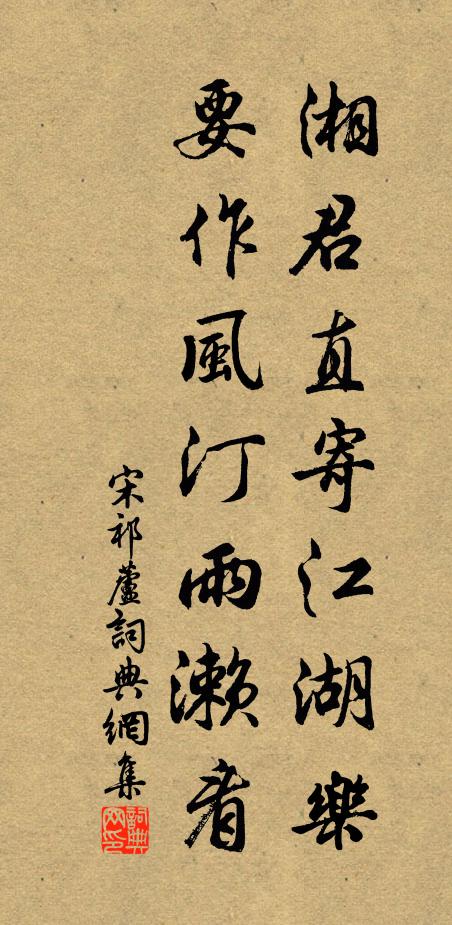 湘君直寄江湖樂
要作風汀雨瀨看
宋祁蘆詞典網集
詞典網印